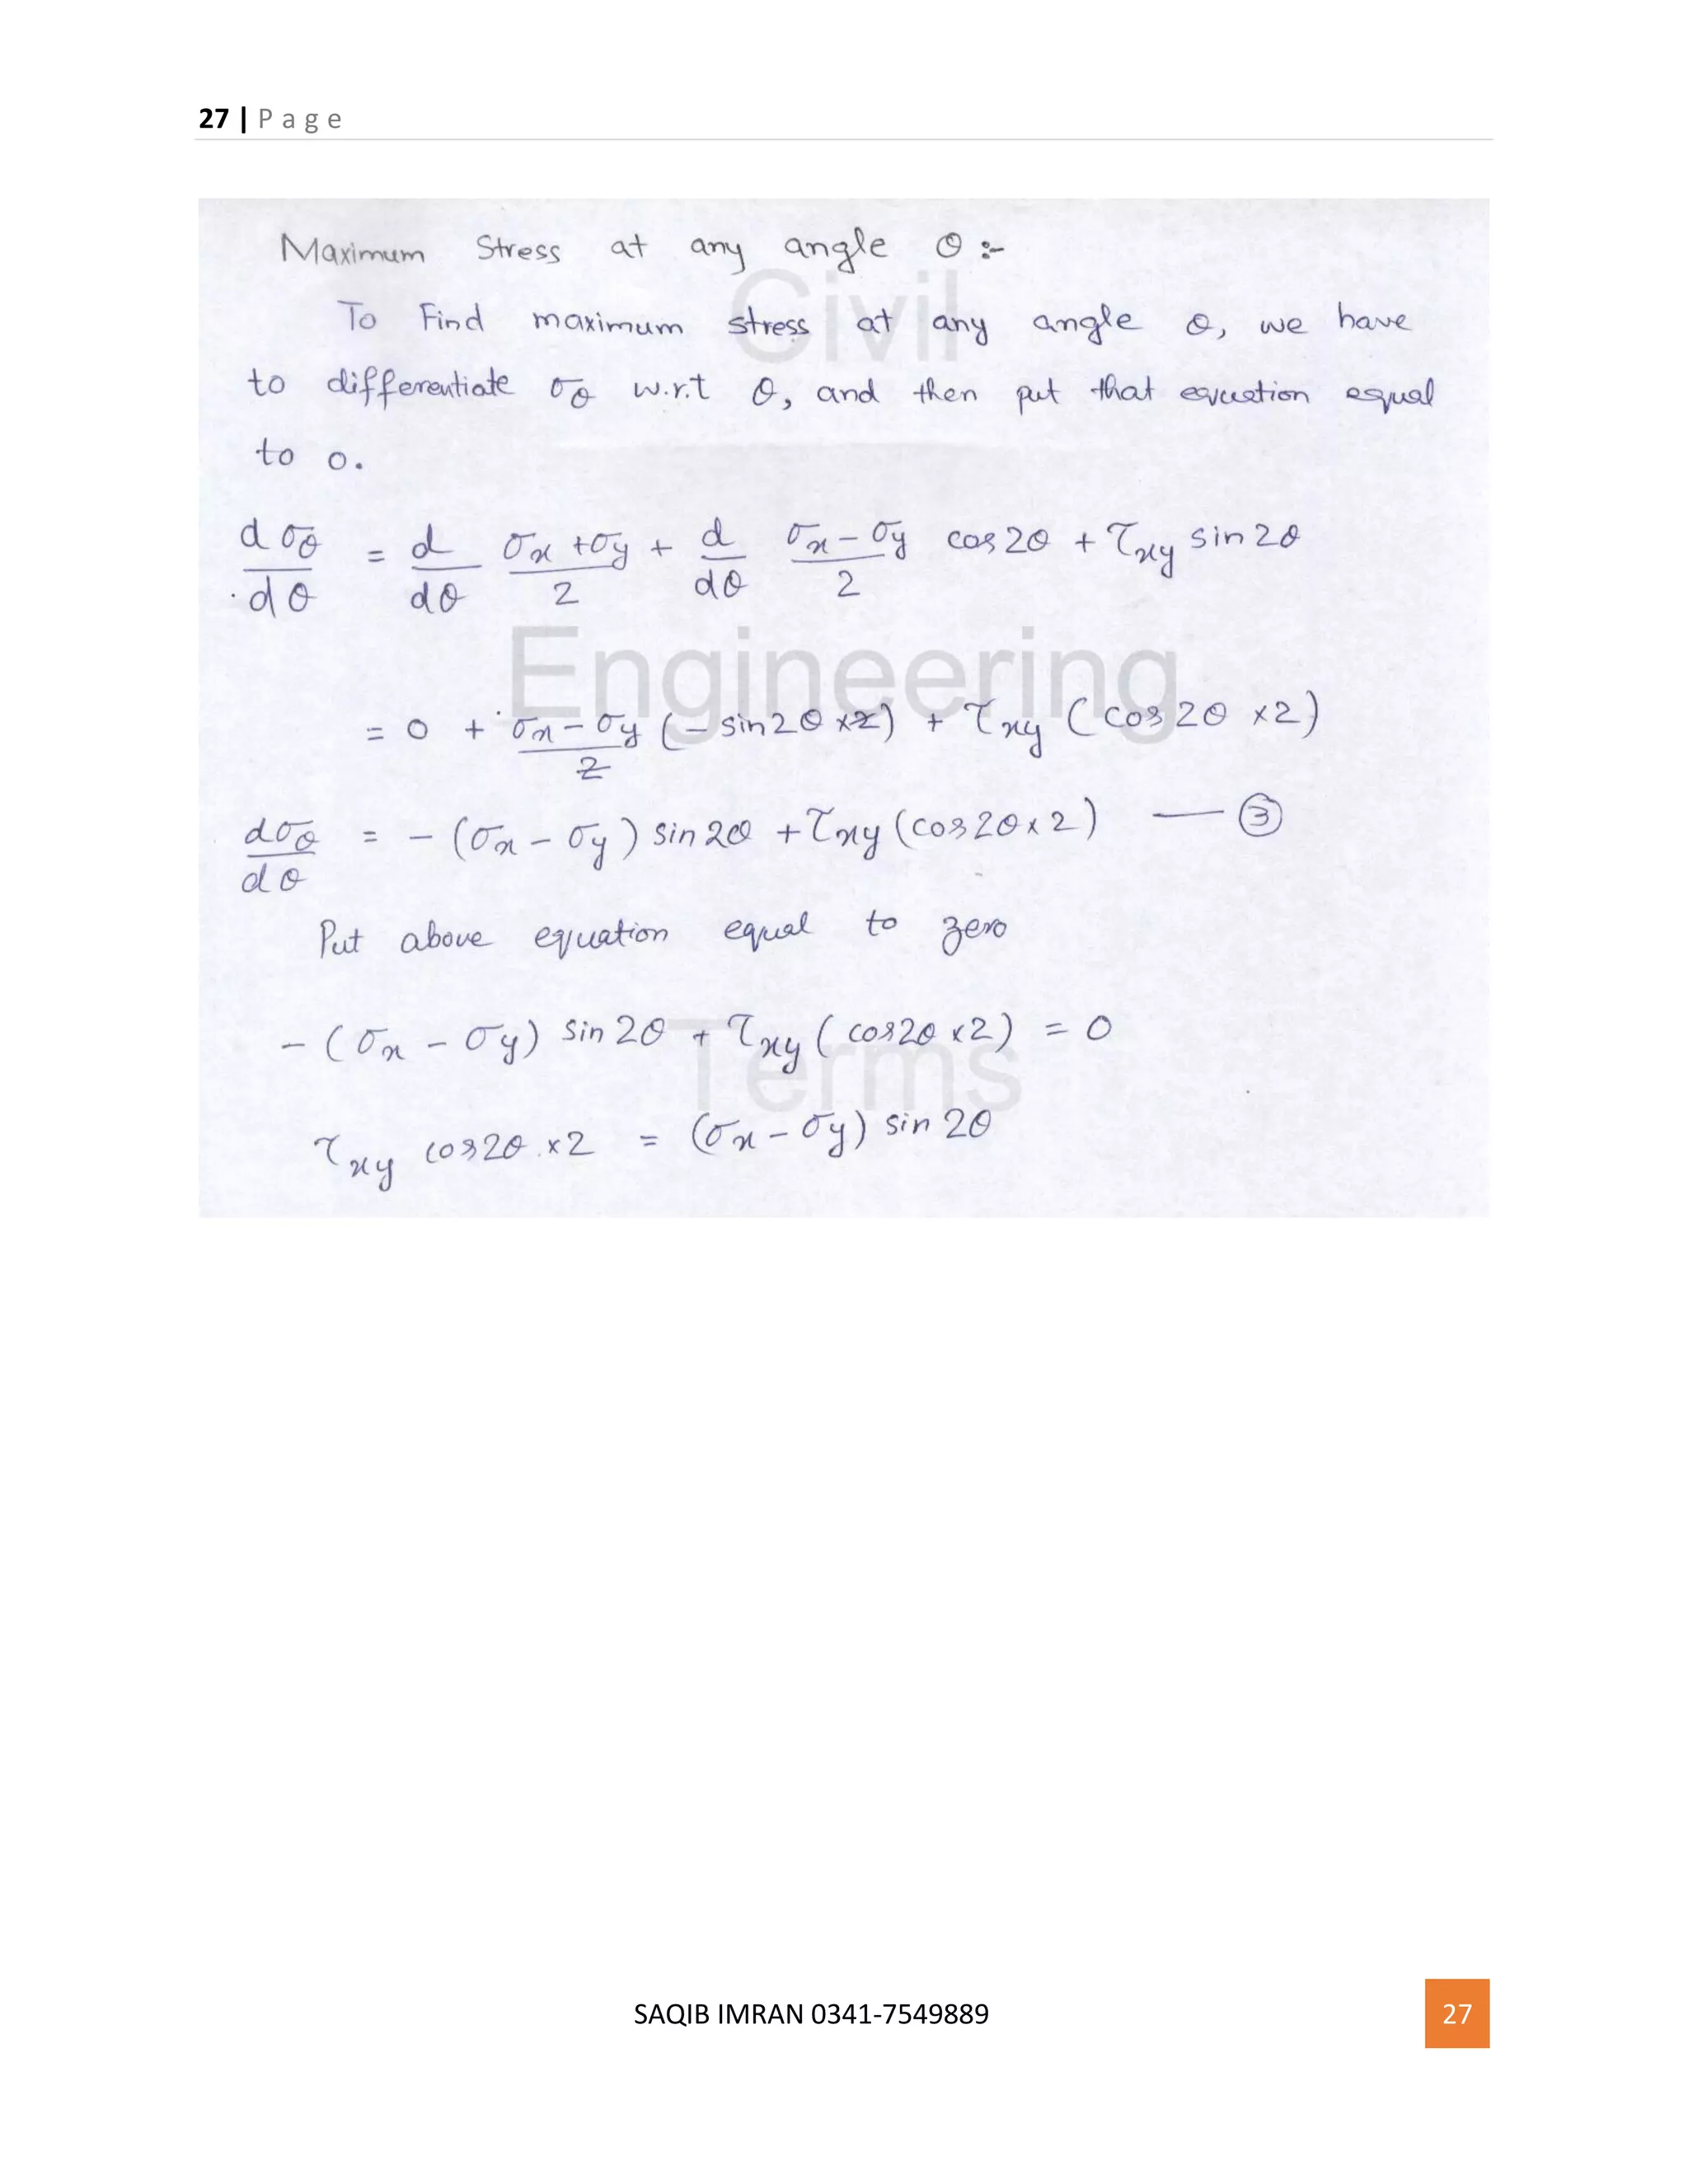 27 | P a g e
Maximum Stress at any angle θ :-
To Find maximum stress at any angle θ, we have
to differentiate σθ w.r.t θ, and then put that equation equal
to 0.
dσθ/dθ = d/dθ (σx+σy)/2 + d/dθ (σx-σy)/2 cos2θ + τxy sin2θ
= 0 + (σx-σy)/2 (-sin2θ ×2) + τxy (cos2θ ×2)
dσθ/dθ = -(σx-σy) sin2θ + τxy (cos2θ×2) — ③
Put above equation equal to zero
-(σx - σy) sin2θ + τxy (cos2θ ×2) = 0
τxy cos2θ ×2 = (σx-σy) sin 2θ
Civil
Engineering
Terms
SAQIB IMRAN 0341-7549889
27